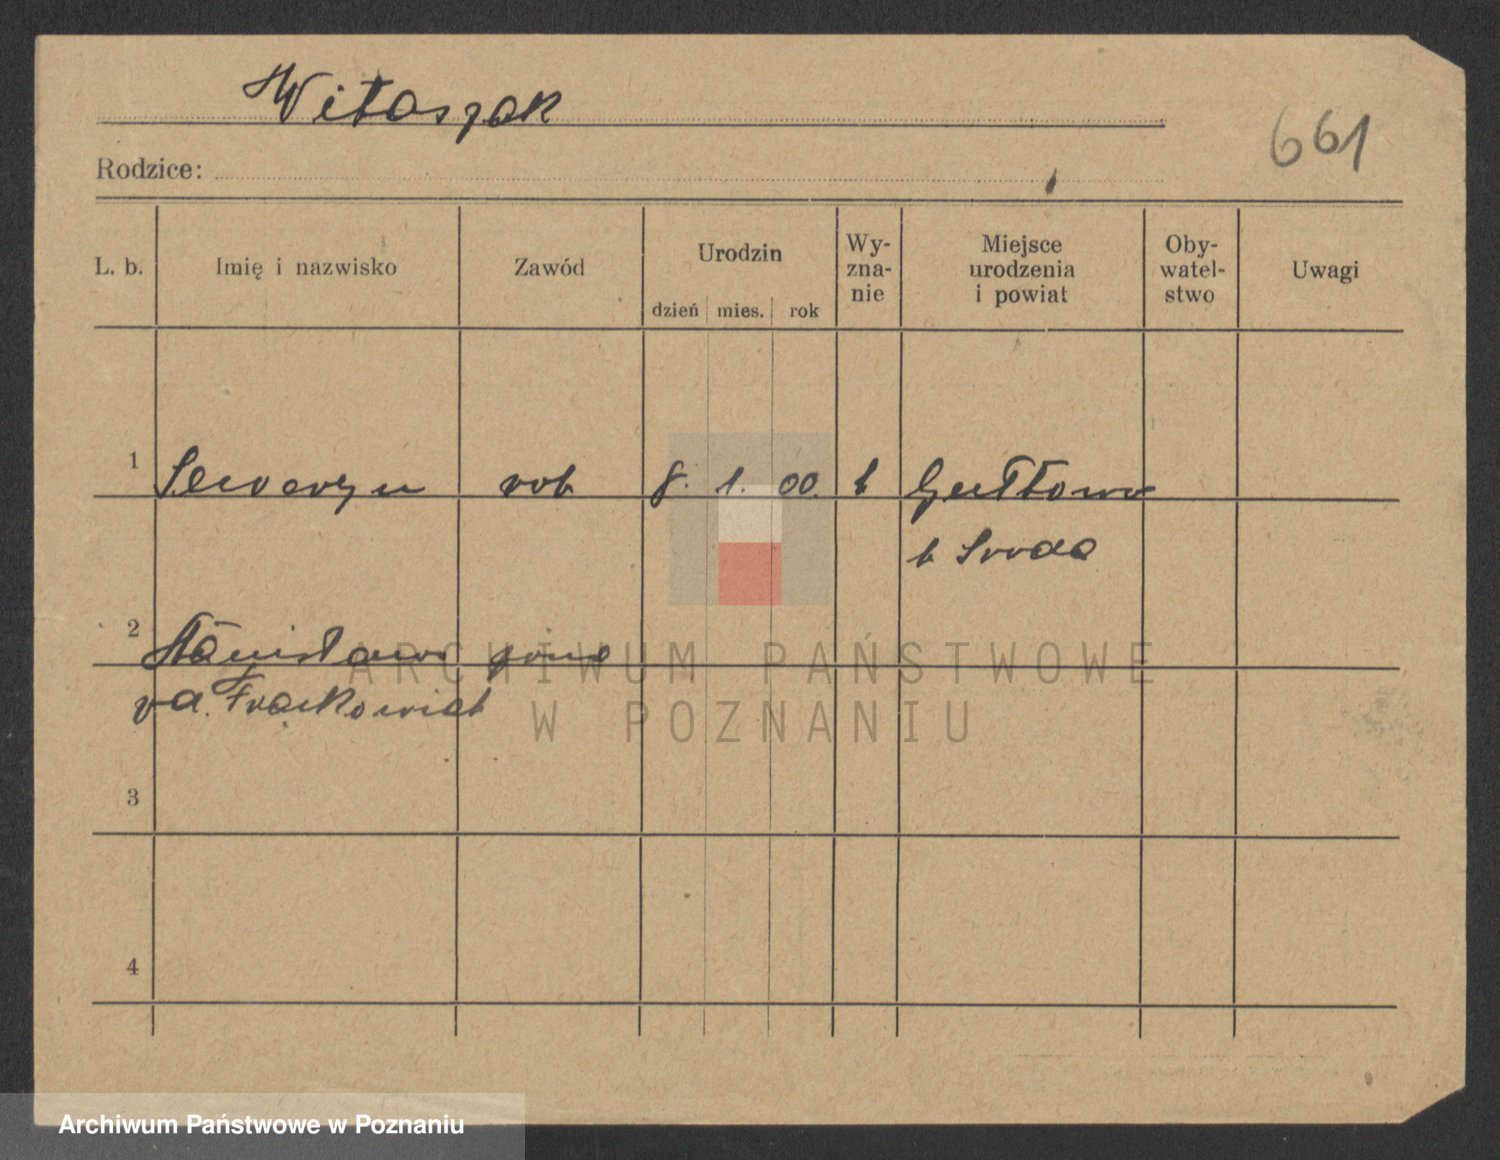 Witaszak
661
Rodzice:
L. b. Imię i nazwisko Zawód Urodzin dzień mies. rok Wy-zna-nie Miejsce urodzenia i powiat Oby-watel-stwo Uwagi
1 Seweryn rob 8. 1. 00. k Gułtowa
k Sroda
2 Stanisława żona
Frąckowiak
3
4
ARCHIWUM PAŃSTWOWE
W POZNANIU
Archiwum Państwowe w Poznaniu